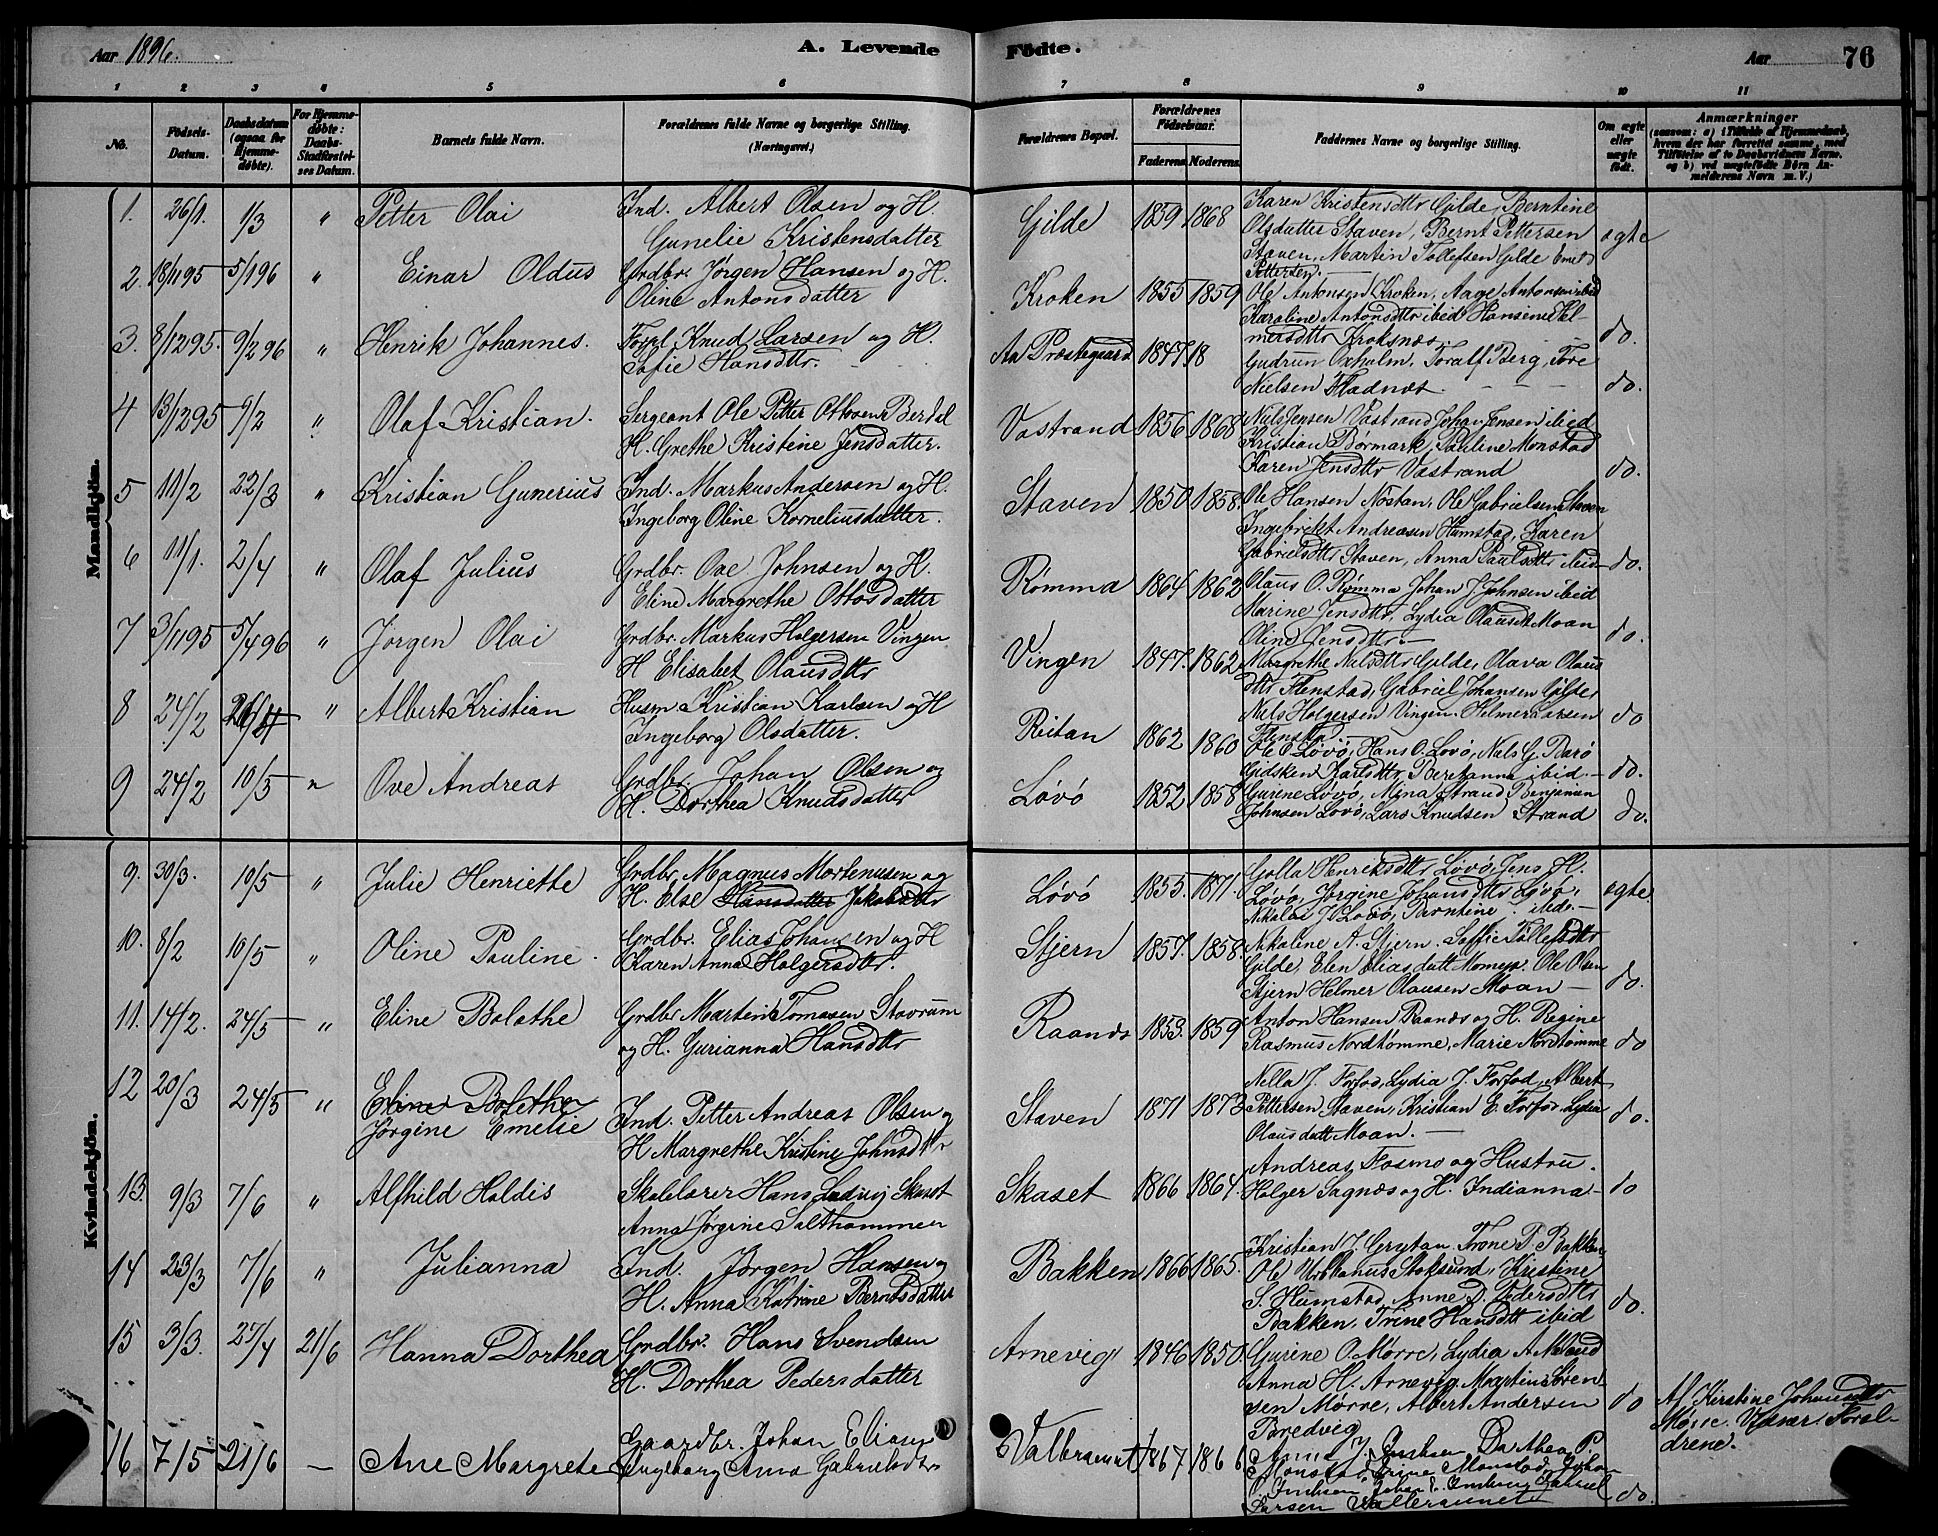 Aar 1896.
A. Levende Födte.
Aar 76
1 2 3 4 5 6 7 8 9 10 11
No.
Födsels-Datum.
Daabsdatum (ogsaa for Hjemmedöbte).
For Hjemmedøbte: Daabs-Stadfæstelses Datum.
Barnets fulde Navn.
Forældrenes fulde Navne og borgerlige Stilling.
(Næringsvei.)
Forældrenes Bopæl.
Forældrenes Födselsaar.
Faderens. Moderens.
Faddernes Navne og borgerlige Stilling.
Om ægte eller uægte födt.
Anmærkninger
(saasom: a) i Tilfælde af Hjemmedaab, hvem der har forrettet samme, med Tilföielse af to Daabsvidners Navne, og b) ved uægtefödte Börn Anmelderens Navn m. V.)
Mandkjön.
1. 26/1. 1/3 " Petter Olai
Ind. Albert Olsen og H.
Gunelie Kristensdatter
Gilde 1859 1868
Karen Kristensdttr Gilde, Berntine
Olsdatter Staven, Bernt Pettersen
Staven, Martin Tollefsen Gilde Emil
Pettersen.
ægte
2. 18/11 95 5/1 96 " Einar Oldus
Grdbr. Jørgen Hansen og H.
Oline Antonsdatter
Kroken 1855 1859
Ole Antonsen Kroken, Aage Antonsen ibid
Karoline Antonsdttr ibid
Kroksnæs.
do.
3. 8/12 95. 9/2 96 " Henrik Johannes.
Knud Larsen og H.
Sofie Hansdttr.
Aa Præstegaard 1847 18
Gudrun Oxholm, Toralf Berg, Tore
Nielsen Fladnæs.
do.
4 13/12 95 9/2 " Olaf Kristian.
Sergeant Ole Petter Ottosen Berdal
H. Grethe Kristine Jensdatter.
Vastrand 1856 1868
Nils Jensen Vastrand Johan Jensen ibid
Kristian Børmark, Pauline Monstad
Karen Jensdttr Vastrand
do.
5 11/2 22/3 " Kristian Gunerius
Ind. Markus Andersen og H.
Ingeborg Oline Korneliusdatter.
Staven 1850 1858.
Ole Hansen Nöstan, Ole Gabrielsen Staven
Ingebrikt Andreasen Humstad, Karen
Gabrielsdttr Staven, Anna Paulsdttr ibid
do.
6 11/1. 2/4 " Olaf Julius
Grdbr. Ove Johnsen og H.
Eline Margrethe Ottosdatter
Römma 1864 1862
Olaus O. Römma Johan J. Johnsen ibid
Marine Jensdttr, Lydia Olausdt Moan
Oline Jensdttr.
do.
7 3/11 95 5/4 96 " Jörgen Olai
Grdbr. Markus Holgersen Vingen
H Elisabet Olausdttr
Vingen 1847. 1862
Margrethe Nilsdttr Gilde, Olava Olaus
dttr Flenstad, Gabriel Johansen Gilde,
Nils Holgersen Vingen. Helmer Larsen
Flenstad.
do
8 24/2 26/4 " Albert Kristian
Husm Kristian Karlsen og H
Ingeborg Olsdatter.
Reitan 1862 1860
Ole O Løvö, Hans O. Lovö, Nils G. Barö
Gidsken Karlsdttr, Beretanna ibid.
do.
9 24/2 10/5 " Ove Andreas
Grdbr. Johan Olsen og
H. Dorthea Knudsdatter
Løvö 1852 1858
Gurene Løvö, Mina Strand Benjamin
Johnsen Lovö, Lars Knudsen Strand
do.
Kvindekjön.
9. 30/3. 10/5 " Julie Henriette
Grdbr. Magnus Mortenusen og
H. Else Hansdatter Jakobsdttr
Lövö 1855. 1871.
Golla Henriksdttr Lövö, Jens H.
Løvö, Jørgine Johansdttr Løvö,
Nikolai J Lovö, Berntine ibid.
ægte
10. 8/2 10/5 " Oline Pauline.
Grdbr. Elias Johansen og H
Karen Anna Holgersdttr.
Stjern 1857. 1858.
Nikoline A. Stjern. Soffie Tollefsdttr
Gilde, Elen Eliasdatt Momyr. Ole Olsen
Stjern Helmer Olausen Moan
do.
11. 14/2. 24/5 " Eline Bolethe
Grdbr Martin Tomasen Stavrum
og H. Gurianna Hansdttr
Raanæs 1853. 1859
Anton Hansen Raanæs og H. Regine
Rasmus Nordhømme, Marie Nordhømme
do
12 20/3 24/5 " Eline Bolethe
Jørgine Emelie
Ind. Petter Andreas Olsen og
H Margrethe Kristine Johnsdttr
Staven 1871 1873
Nella J. Forfod, Lydia J. Forfod, Albert
Pettersen Staven, Kristian E. Forfod, Lydia
Olausdatt Moan.
do.
13. 9/3 7/6 " Alfhild Haldis
Skolelærer Hans Ludvig Skaset
Anna Jørgine Salthammer
Skaset 1866 1864.
Andreas Fosmo og Hustru.
Holger Sagnæs og H. Indianna
do
14 23/3 7/6 " Julianna
Ind. Jørgen Hansen og
H. Anna Katrine Berntsdatter
Bakken 1866 1865.
Kristian J Grytan. Trone P. Bakken
Ole Urbanus Stoksund, Kristine
S. Humstad, Anne D. Pedersdttr
Bakken, Trine Hansdtt ibid
do.
15 3/3. 27/4 21/6 Hanna Dorthea
Grdbr. Hans Svendsen
H. Dorthea Pedersdatter
Arnevig 1846 1850.
Gurine O. Mörre, Lydia A
Anna H. Arnevig Martinus Soren
sen Mörre, Albert Andersen
Bredvig
do
Af Kirstine Johansdttr
Mörre. Foræl-
drene.
16 7/5 21/6 — Ane Margrete
Gaardbr. Johan Eliasen
Ingeborg Anna Gabrielsdtr
Valleraunet 1867 1866
Monstad, Trine Monstad, Johan
Larsen Valleraunet
do.